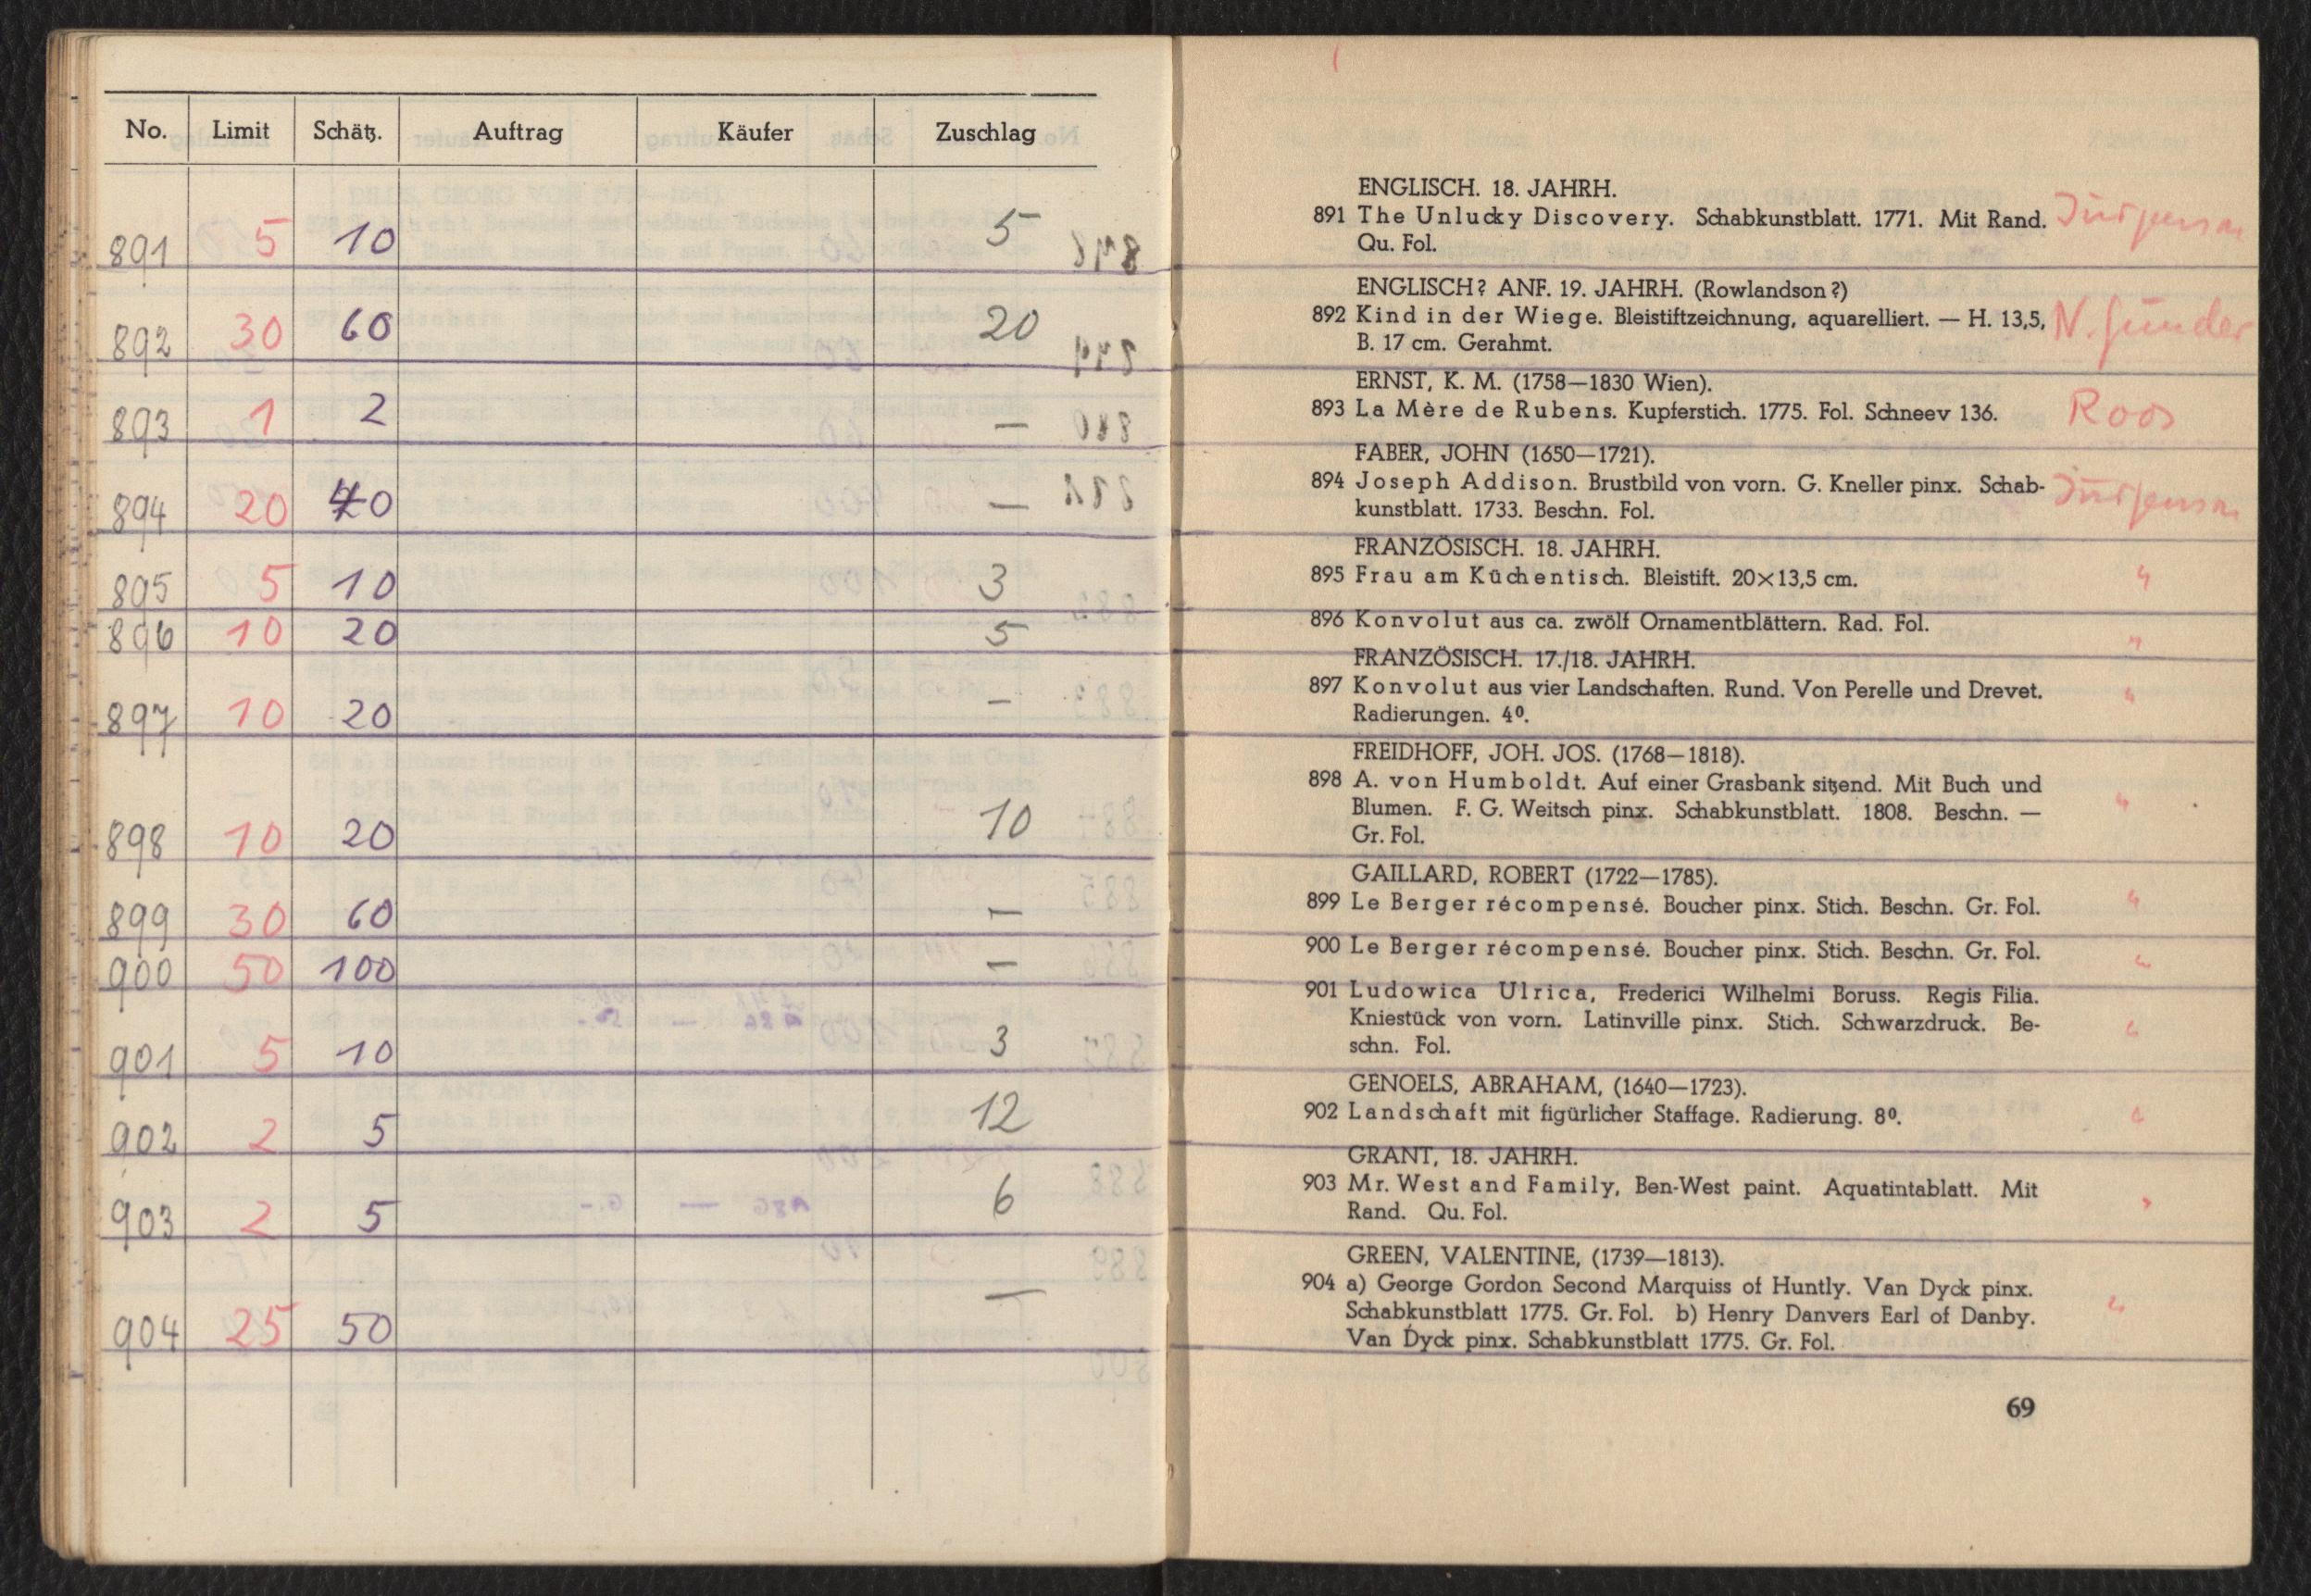 No. Limit Schätz. Auftrag Käufer Zuschlag
891 5 10 5
892 30 60 20
893 1 2 —
894 20 40 —
895 5 10 3
896 10 20 5
897 10 20 —
898 10 20 10
899 30 60 —
900 50 100 —
901 5 10 3
902 2 5 12
903 2 5 6
904 25 50 —
ENGLISCH. 18. JAHRH.
891 The Unlucky Discovery. Schabkunstblatt. 1771. Mit Rand.
Qu. Fol.
ENGLISCH? ANF. 19. JAHRH. (Rowlandson?)
892 Kind in der Wiege. Bleistiftzeichnung, aquarelliert. — H. 13,5, N.
B. 17 cm. Gerahmt.
ERNST, K. M. (1758—1830 Wien).
893 La Mère de Rubens. Kupferstich. 1775. Fol. Schneev 136. Roos
FABER, JOHN (1650—1721).
894 Joseph Addison. Brustbild von vorn. G. Kneller pinx. Schab-
kunstblatt. 1733. Beschn. Fol.
FRANZÖSISCH. 18. JAHRH.
895 Frau am Küchentisch. Bleistift. 20×13,5 cm. "
896 Konvolut aus ca. zwölf Ornamentblättern. Rad. Fol. "
FRANZÖSISCH. 17./18. JAHRH.
897 Konvolut aus vier Landschaften. Rund. Von Perelle und Drevet. "
Radierungen. 4⁰.
FREIDHOFF, JOH. JOS. (1768—1818).
898 A. von Humboldt. Auf einer Grasbank sitzend. Mit Buch und
Blumen. F. G. Weitsch pinx. Schabkunstblatt. 1808. Beschn. — "
Gr. Fol.
GAILLARD, ROBERT (1722—1785).
899 Le Berger récompensé. Boucher pinx. Stich. Beschn. Gr. Fol. "
900 Le Berger récompensé. Boucher pinx. Stich. Beschn. Gr. Fol. "
901 Ludowica Ulrica, Frederici Wilhelmi Boruss. Regis Filia.
Kniestück von vorn. Latinville pinx. Stich. Schwarzdruck. Be- "
schn. Fol.
GENOELS, ABRAHAM, (1640—1723).
902 Landschaft mit figürlicher Staffage. Radierung. 8⁰. "
GRANT, 18. JAHRH.
903 Mr. West and Family, Ben-West paint. Aquatintablatt. Mit "
Rand. Qu. Fol.
GREEN, VALENTINE, (1739—1813).
904 a) George Gordon Second Marquiss of Huntly. Van Dyck pinx.
Schabkunstblatt 1775. Gr. Fol. b) Henry Danvers Earl of Danby. "
Van Dyck pinx. Schabkunstblatt 1775. Gr. Fol.
69